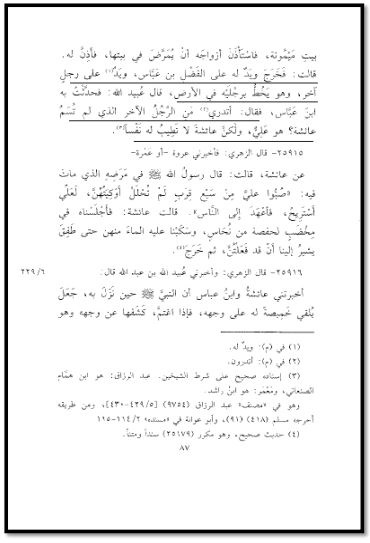 بيتِ مَيْمُونة، فاسْتَأْذَنَ أزواجَه أنْ يُمَرَّضَ في بيتها، فأَذِنَّ له.
قالت: فَخَرَجَ ويَدٌ له على الفَضْل بن عبَّاس، ويَدٌ(١) على رجلٍ
آخر، وهو يَخُطُّ برجلَيْه في الأرض، قال عُبيد الله: فحدَّثْتُ به
ابنَ عبَّاس، فقال: أتدري(٢) مَنِ الرَّجُلُ الآخر الذي لم تُسَمِّ
عائشة؟ هو عَليٌّ، ولَكنَّ عائشةَ لا تَطِيبُ له نَفْساً(٣).
٢٥٩١٥- قال الزهري: فأخبرني عروة -أو عَمْرة-
عن عائشة، قالت: قال رسولُ الله ﷺ في مَرَضِهِ الذي ماتَ
فيه: «صُبُّوا عليَّ مِنْ سَبْعِ قِرَبٍ لَمْ تُحْلَلْ أَوْكِيَتُهُنَّ، لَعَلِّي
أَسْتَرِيحُ، فأَعْهَدَ إلى النَّاسِ». قالت عائشة: فأَجْلَسْناه في
مِخْضَبٍ لحفصة من نُحاسٍ، وسَكَبْنا عليه الماءَ منهن حتى طَفِقَ
يشيرُ إلينا أنْ قد فَعَلْتُنَّ، ثم خَرَجَ(٤).
٢٥٩١٦- قال الزهري: وأخبرني عُبيد الله بن عبد الله قال: ٢٢٩/٦
أخبرتني عائشةُ وابنُ عباس أن النبيَّ ﷺ حين نَزَلَ به، جَعَلَ
يُلقي خَمِيصةً له على وجهه، فإذا اغتمَّ، كَشَفَها عن وجهه وهو
(١) في (م): ويدٌ له.
(٢) في (م): أتدرون.
(٣) إسناده صحيح على شرط الشيخين. عبد الرزاق: هو ابن همَّام
الصنعاني، ومَعْمَر: هو ابنُ راشد.
وهو في «مصنف» عبد الرزاق (٩٧٥٤) [٤٢٩/٥-٤٣٠]، ومن طريقه
أخرجه مسلم (٤١٨) (٩١)، وأبو عوانة في «مسنده» ١١٤/٢-١١٥
(٤) حديث صحيح، وهو مكرر (٢٥١٧٩) سنداً ومتناً.
٨٧